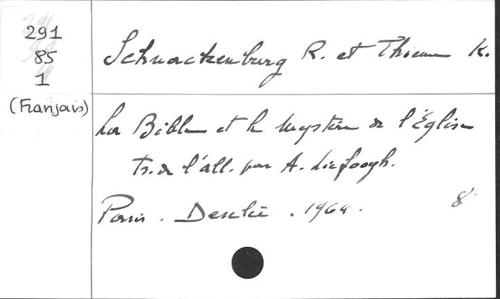 291
85
1
(Français)
Schnackenburg R. et Thieme K.
La Bible et le mystère de l'Église
tr. de l'all. par A. Liefoogh.
Paris. Desclée. 1964. 8°